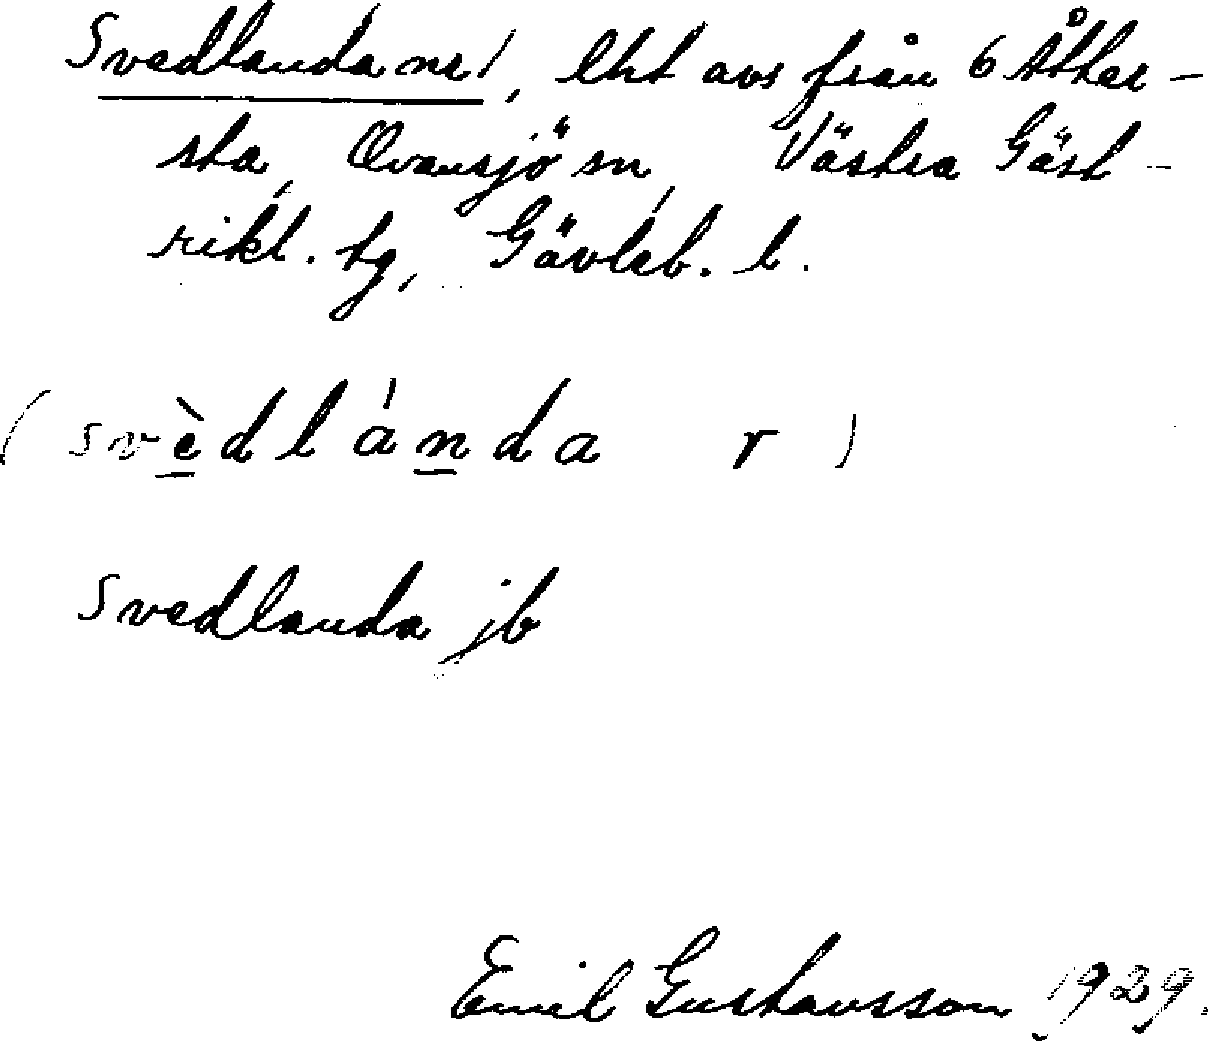 Svedlanda nr 1, lht avs från 6 Åtter-
sta, Ovansjö sn, Västra Gäst-
rikl. tg, Gävleb. l.
(svèdlánda r)
Svedlanda jb
Emil Gustavsson 1929.